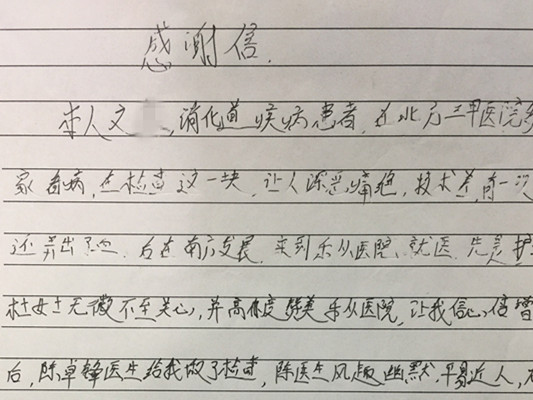 感谢信.
本人文 , 消化道 疾病患者, 在北方三甲医院多
家看病, 在检查这一块, 让人深恶痛绝, 技术差, 有一次
还弄出了血. 后在南方发展, 来到乐从医院, 就医, 先是护
杜女士无微不至关心, 并高度 赞美乐从医院, 让我信心倍增
后, 陈卓锋医生给我做了检查, 陈医生风趣幽默, 平易近人,